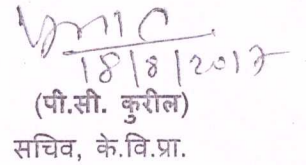 18/8/2017
(पी.सी. कुरील)
सचिव, के.वि.प्रा.